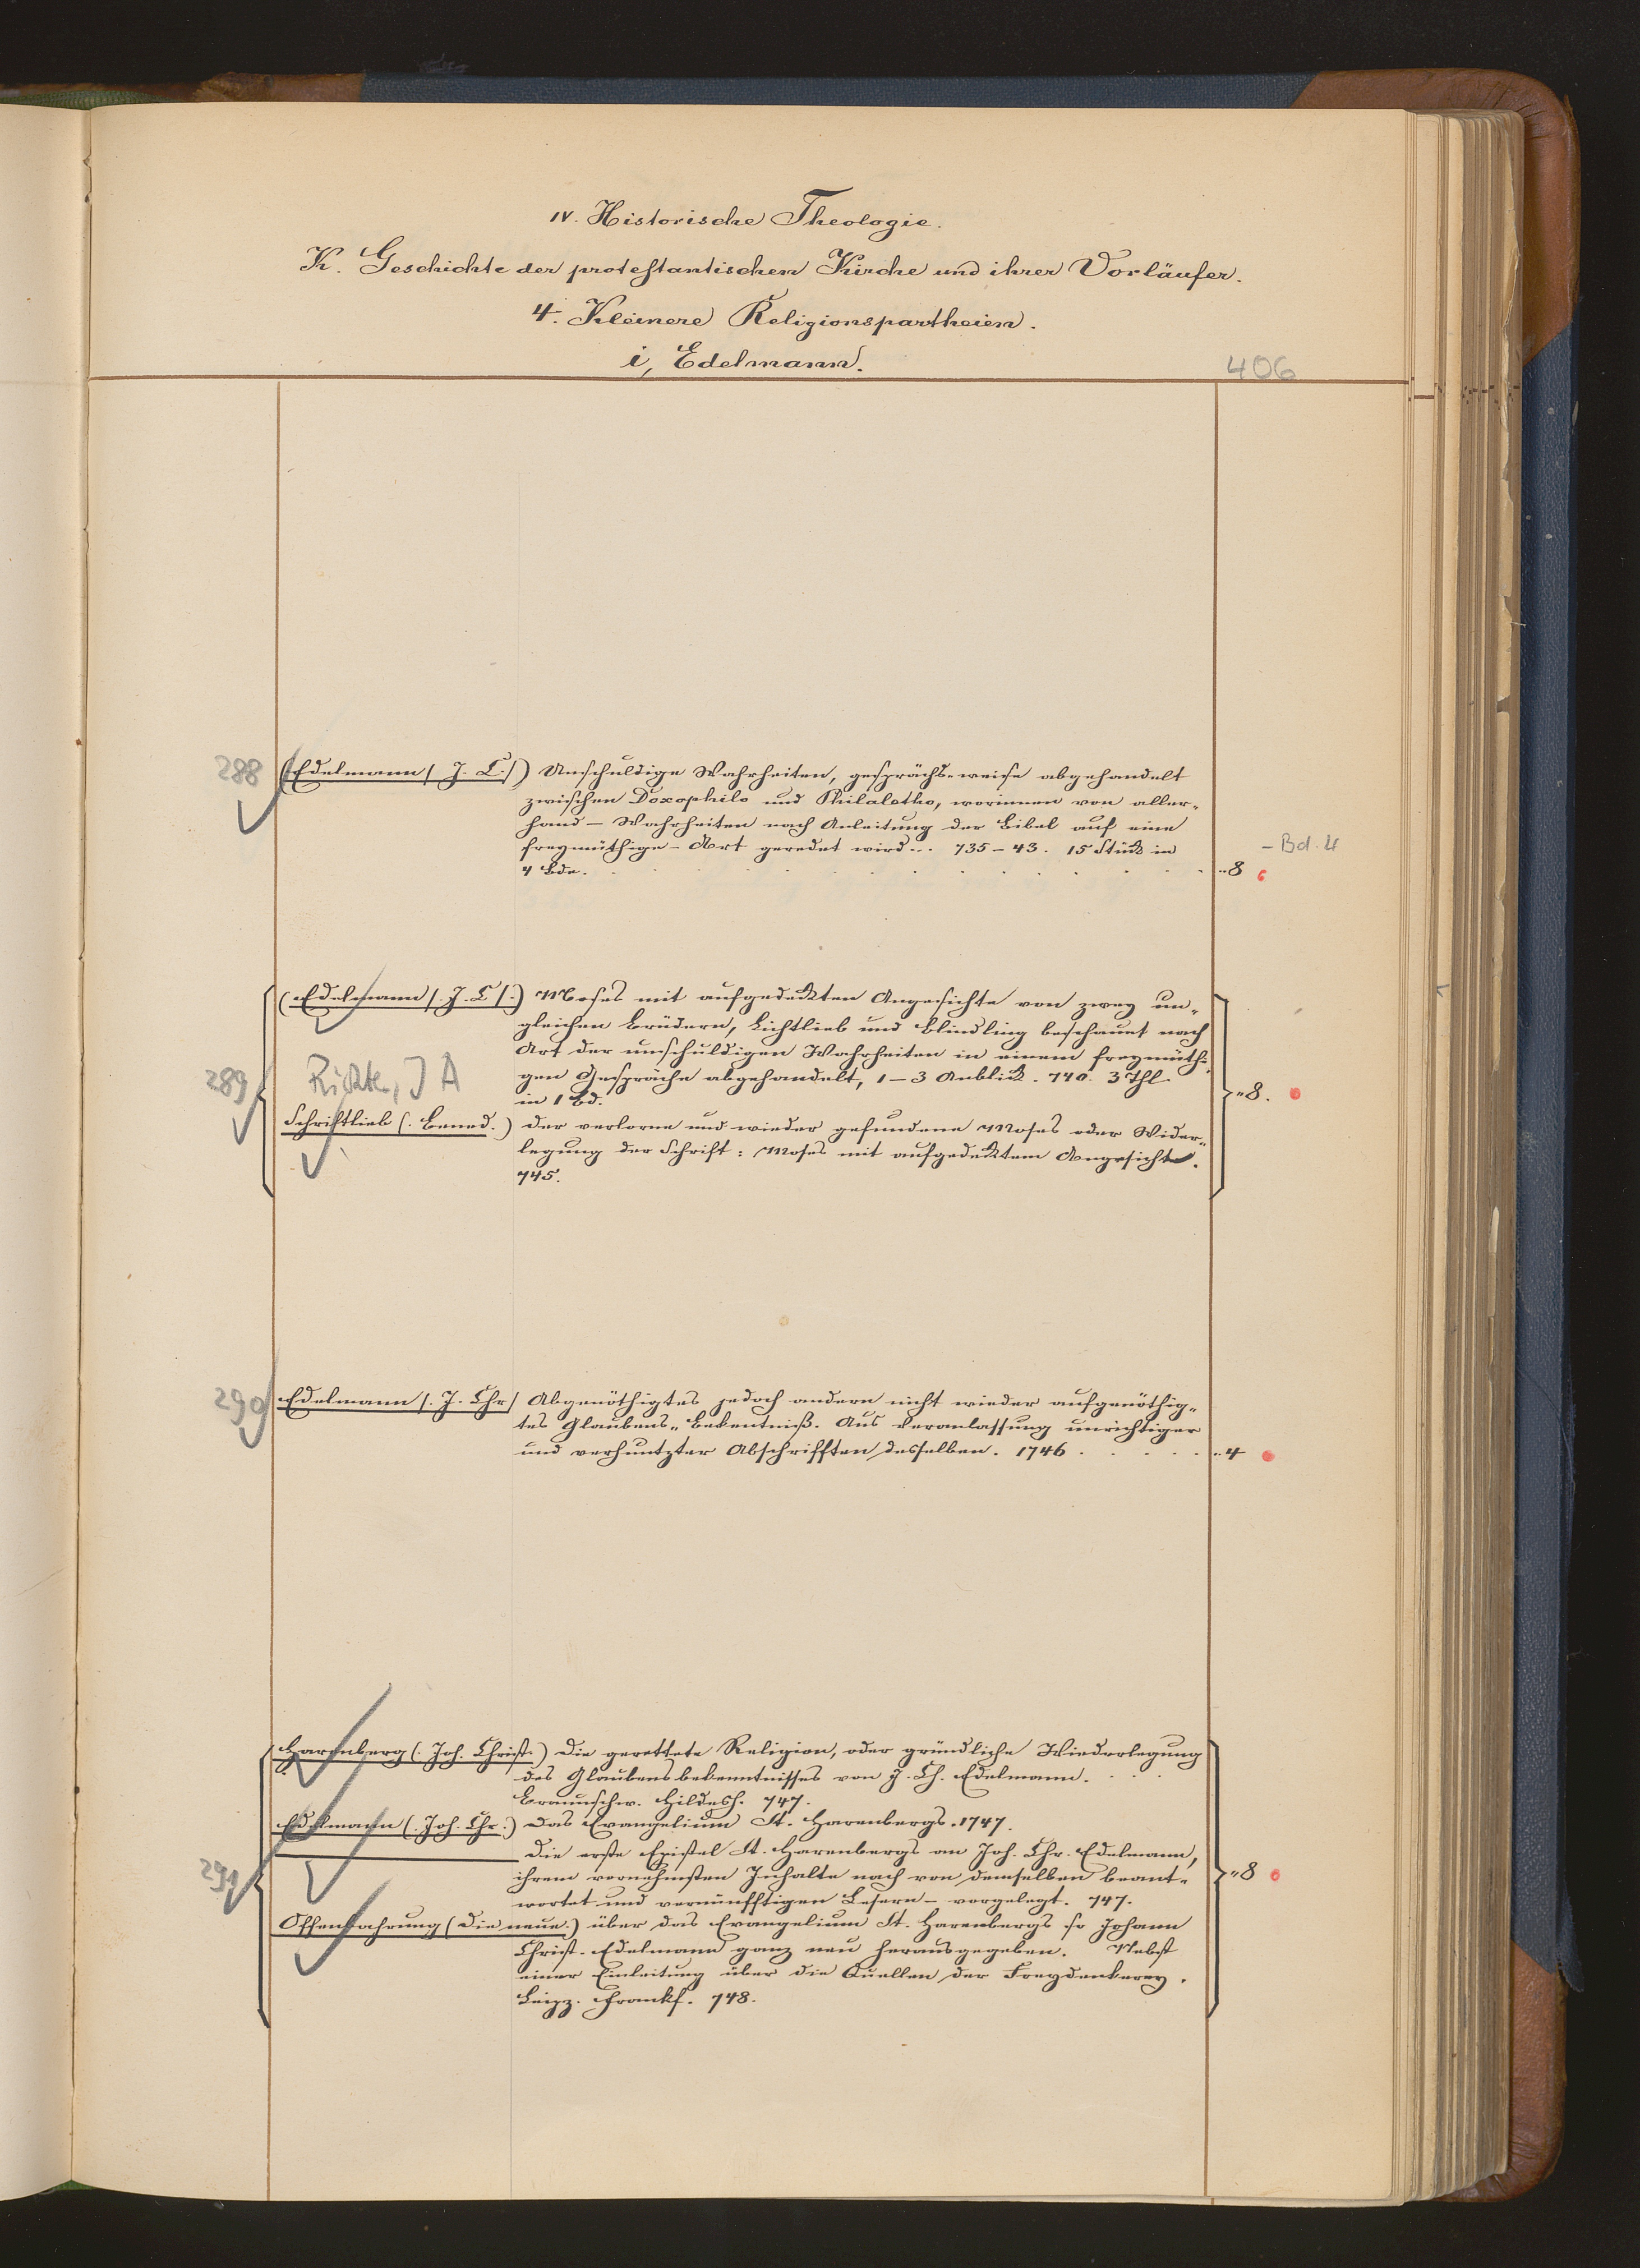 IV. Historische Theologie.
K. Geschichte der protestantischen Kirche und ihrer Vorläufer.
4. Kleinere Religionspartheien.
i, Edelmann.
406
288 (Edelmann (. J. C.)) Unschuldige Wahrheiten, gesprächs-weise abgehandelt
zwischen Doxophilo und Philaletho, worinnen von aller-
hand - Wahrheiten nach Anleitung der Bibel auf eine
freymüthige - Art geredet wird... 735-43. 15 Stück in
4 Bde. "8
- Bd. 4
(Edelmann (. J. C.)) Moses mit aufgedeckten Angesichte von zwey un-
gleichen Brüdern, Lichtlieb und Blindling beschauet nach
Art der unschuldigen Wahrheiten in einem freymüthi-
289 gen Gespräche abgehandelt, 1-3 Anblick. 740. 3 Thl.
in 1 Bd. "8.
Richter, J A
Schriftlieb (. Bened.) Der verlorne und wieder gefundene Moses oder Wider-
legung der Schrift: Moses mit aufgedecktem Angesichte.
745.
290 Edelmann (. J. Chr) Abgenöthigtes jedoch andern nicht wieder aufgenöthig-
tes Glaubens-Bekentniß. Aus Veranlassung unrichtiger
und verhuntzter Abschrifften desselben. 1746. "4
Harenberg (. Joh. Christ.) Die gerettete Religion, oder gründliche Wiederlegung
des Glaubensbekenntnisses von J. Ch. Edelmann.
Braunschw. Hildesh. 747.
Edelmann (. Joh. Chr.) Das Evangelium St. Harenbergs. 1747.
Die erste Epistel St. Harenbergs an Joh. Chr. Edelmann,
291 ihrem vornehmsten Inhalte nach von demselben beant- "8
wortet und vernünfftigen Lesern - vorgelegt. 747.
Offenbahrung (Die neue.) über das Evangelium St. Harenbergs so Johann
Christ. Edelmann ganz neu herausgegeben. Nebst
einer Einleitung über die Quellen der Freydenkerey.
Leipz. Franckf. 748.